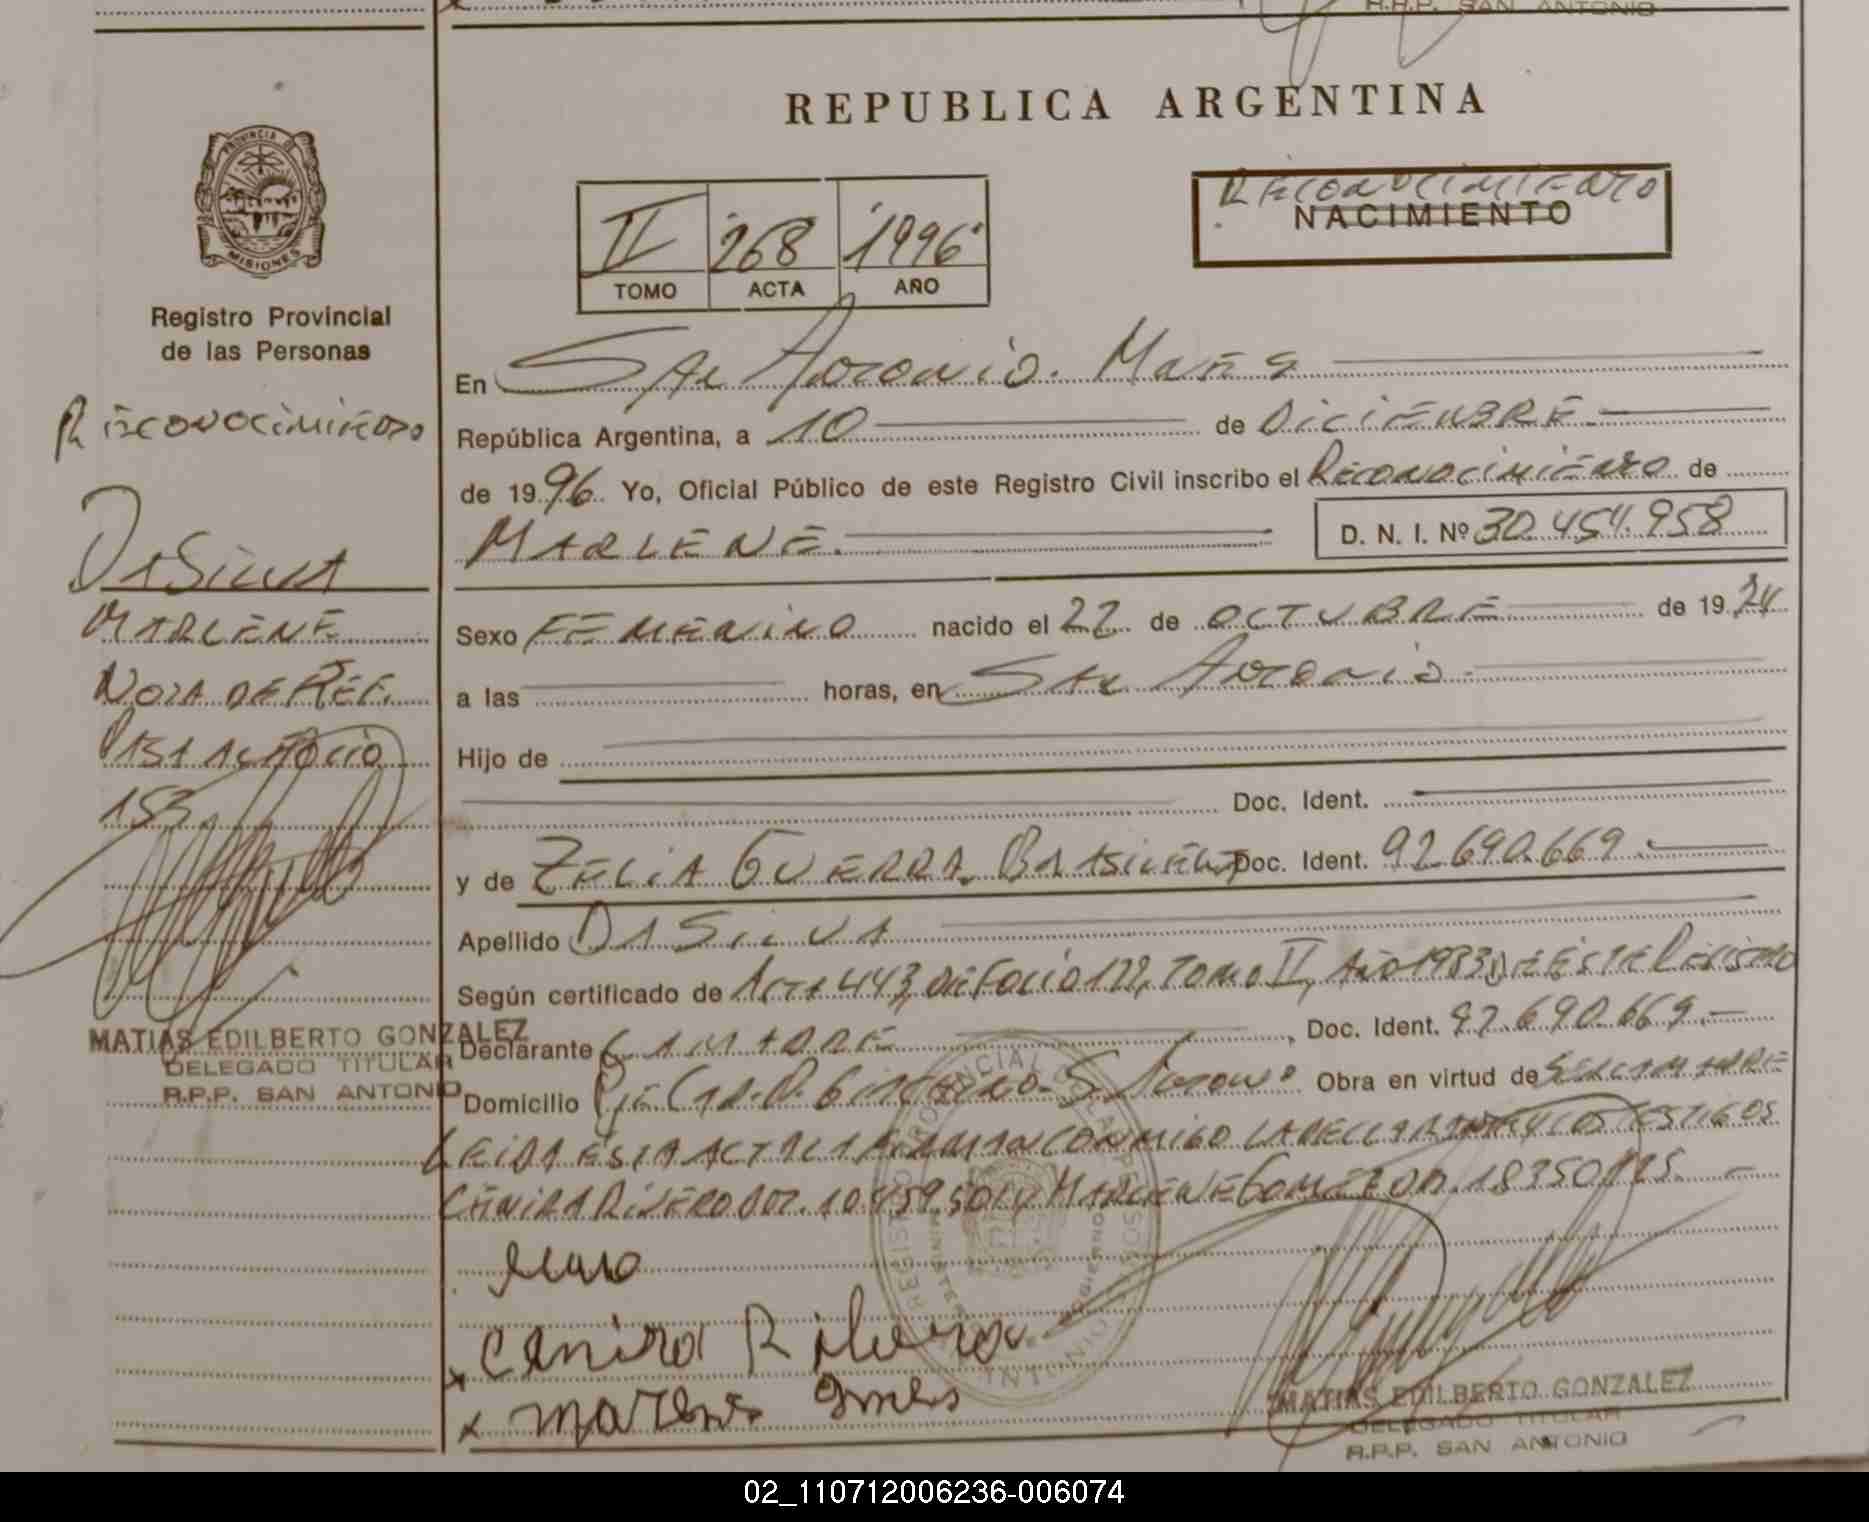 R.P.P. SAN ANTONIO
REPUBLICA ARGENTINA
PROVINCIA DE
MISIONES
Registro Provincial
de las Personas
II 268 1996
TOMO ACTA AÑO
Reconocimiento
NACIMIENTO
En San Antonio. Mnes
República Argentina, a 10 de Diciembre
de 1996. Yo, Oficial Público de este Registro Civil inscribo el Reconocimiento de
MARLENE. D. N. I. Nº 30.454.958
Sexo FEMENINO nacido el 22 de OCTUBRE de 19
a las horas, en San Antonio
Hijo de
Doc. Ident.
y de ZELIA GUERRA. Brasileña Doc. Ident. 92.690.669
Apellido DA SILVA
Según certificado de Acta 443, de Folio 122, Tomo II, Año 1983 de este Registro
Declarante La Madre, Doc. Ident. 92.690.669.-
Domicilio S. Antonio Obra en virtud de ser la madre
Leida esta acta la firman conmigo la declarante y los testigos
RIVERO 10.459.501 y MARLENE GOMEZ 18350125.
Canira Ribeiro
x
x Marlene Gomes
MATIAS EDILBERTO GONZALEZ
DELEGADO TITULAR
R.P.P. SAN ANTONIO
Reconocimiento
DA SILVA
MARLENE
NOTA DE REF.
Pasa al folio
153
MATIAS EDILBERTO GONZALEZ
DELEGADO TITULAR
R.P.P. SAN ANTONIO
02_110712006236-006074